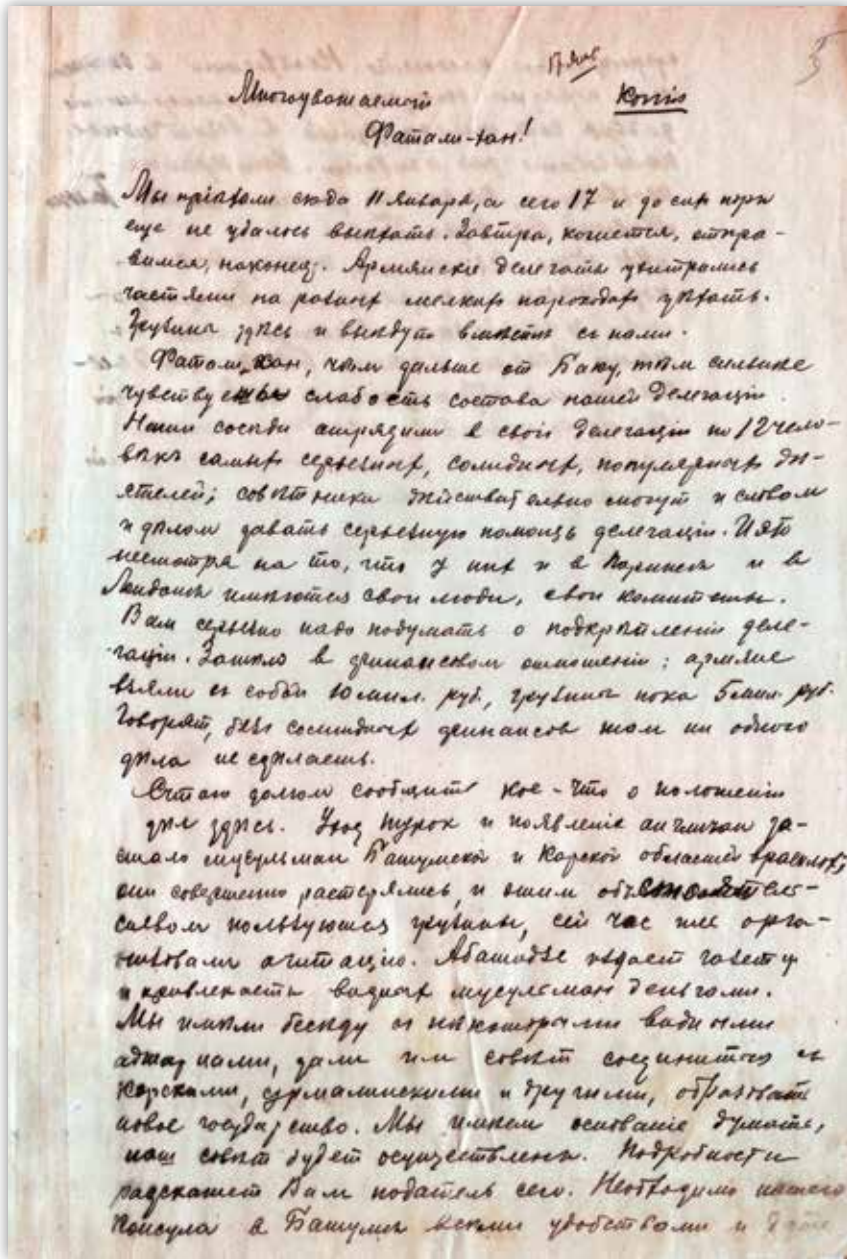 17 Янв
Многоуважаемый Копія
Фатали-хан!
Мы пріѣхали сюда 11 Января, а сего 17 и до сих поръ
еще не удалось выѣхать. Завтра, кажется, отпра-
вимся, наконец. Армянскіе делегаты ухитрились
частями на разных мелких пароходах уѣхать.
Грузины здѣсь и выѣдут вмѣстѣ съ нами.
Фатали хан, чѣм дальше от Баку, тѣм сильнѣе
чувствуем слабость состава нашей делегаціи.
Наши сосѣди снарядили в свои делегаціи по 12 чело-
вѣкъ самых серьезных, солидных, популярных дѣ-
ятелей; совѣтники дѣйствительно могут и словом
и дѣлом давать серьезную помощь делегаціи. И это
несмотря на то, что у них и в Парижѣ и в
Лондонѣ имѣются свои люди, свои комитеты.
Вам серьезно надо подумать о подкрѣпленіи деле-
гаціи. Также в финансовом отношеніи: армяне
взяли съ собой 10 мил. руб., грузины пока 5 мил. руб.
Говорят, без солидных финансов там ни одного
дѣла не сдѣлаешь.
Считаю долгом сообщить кое-что о положеніи
дѣл здѣсь. Уход турок и появленіе англичан за-
стало мусульман Батумской и Карской областей врасплох,
они совершенно растерялись, и этим обстоятель-
ством пользуются грузины, сейчас же орга-
низовали агитацію. Абашидзе издает газету
и привлекает видных мусульман деньгами.
Мы имѣли бесѣду съ нѣкоторыми видными
аджарцами, дали им совѣт соединиться съ
Карскими, сурмалинскими и другими, образовать
новое государство. Мы имѣем основаніе думать,
наш совѣт будет осуществлен. Подробности
разскажет Вам податель сего. Необходимо нашего
Консула в Батумѣ всѣми удобствами и